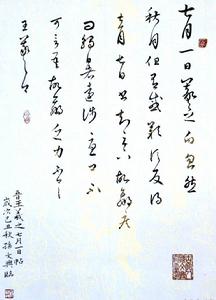 七月一日羲之白忽然
秋月但有感歎信反得
去月七日書知足下故羸疾
問觸暑遠涉憂卿不
可言吾故羸乏力不具
王羲之白
王羲之七月一日帖
歲次己丑秋孫文興臨